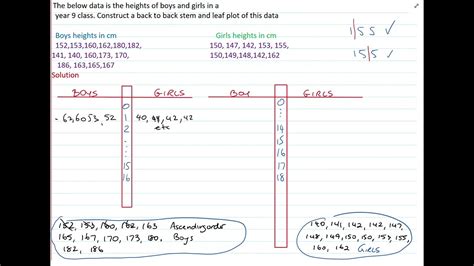 The below data is the heights of boys and girls in a
year 9 class. Construct a back to back stem and leaf plot of this data
1|55 ✓
15|5 ✓
Boys heights in cm
152,153,160,162,180,182,
141, 140, 160,173, 170,
186, 163,165,167
Girls heights in cm
150, 147, 142, 153, 155,
150,149,148,142,162
Solution
BOYS GIRLS
0
63,6053,52 1 40, 48, 42, 42
2 etc
15
16
BOY GIRLS
0
14
15
16
17
18
152, 153, 160, 162, 163 Ascending order
165, 167, 170, 173, 180, Boys
182, 186
140, 141, 142, 142, 147,
148, 149, 150, 150, 153, 155,
160, 162 GIRLS